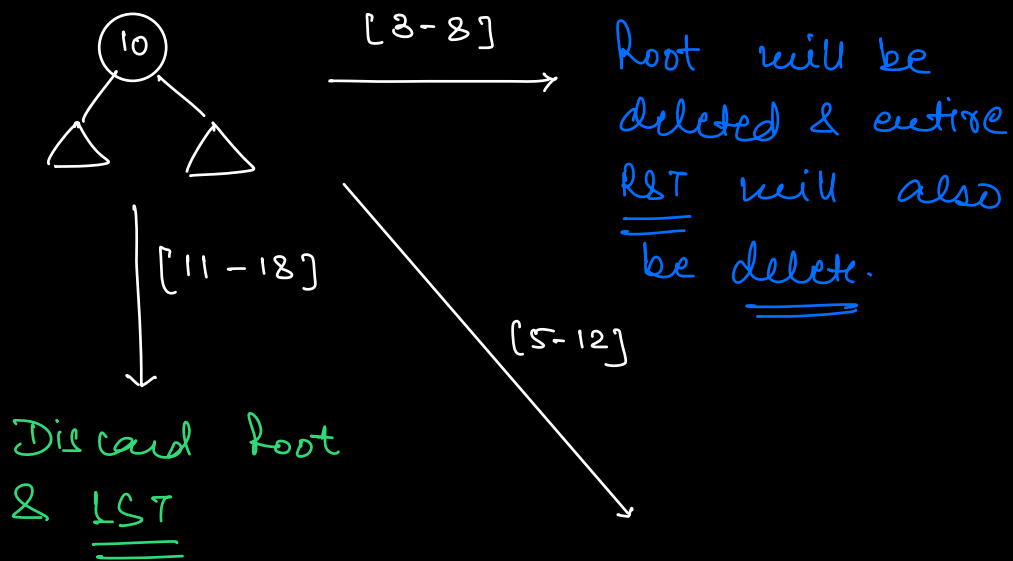 10
[3-8]
Root will be
deleted & entire
RST will also
be delete.
[11-18]
[5-12]
Discard Root
& LST